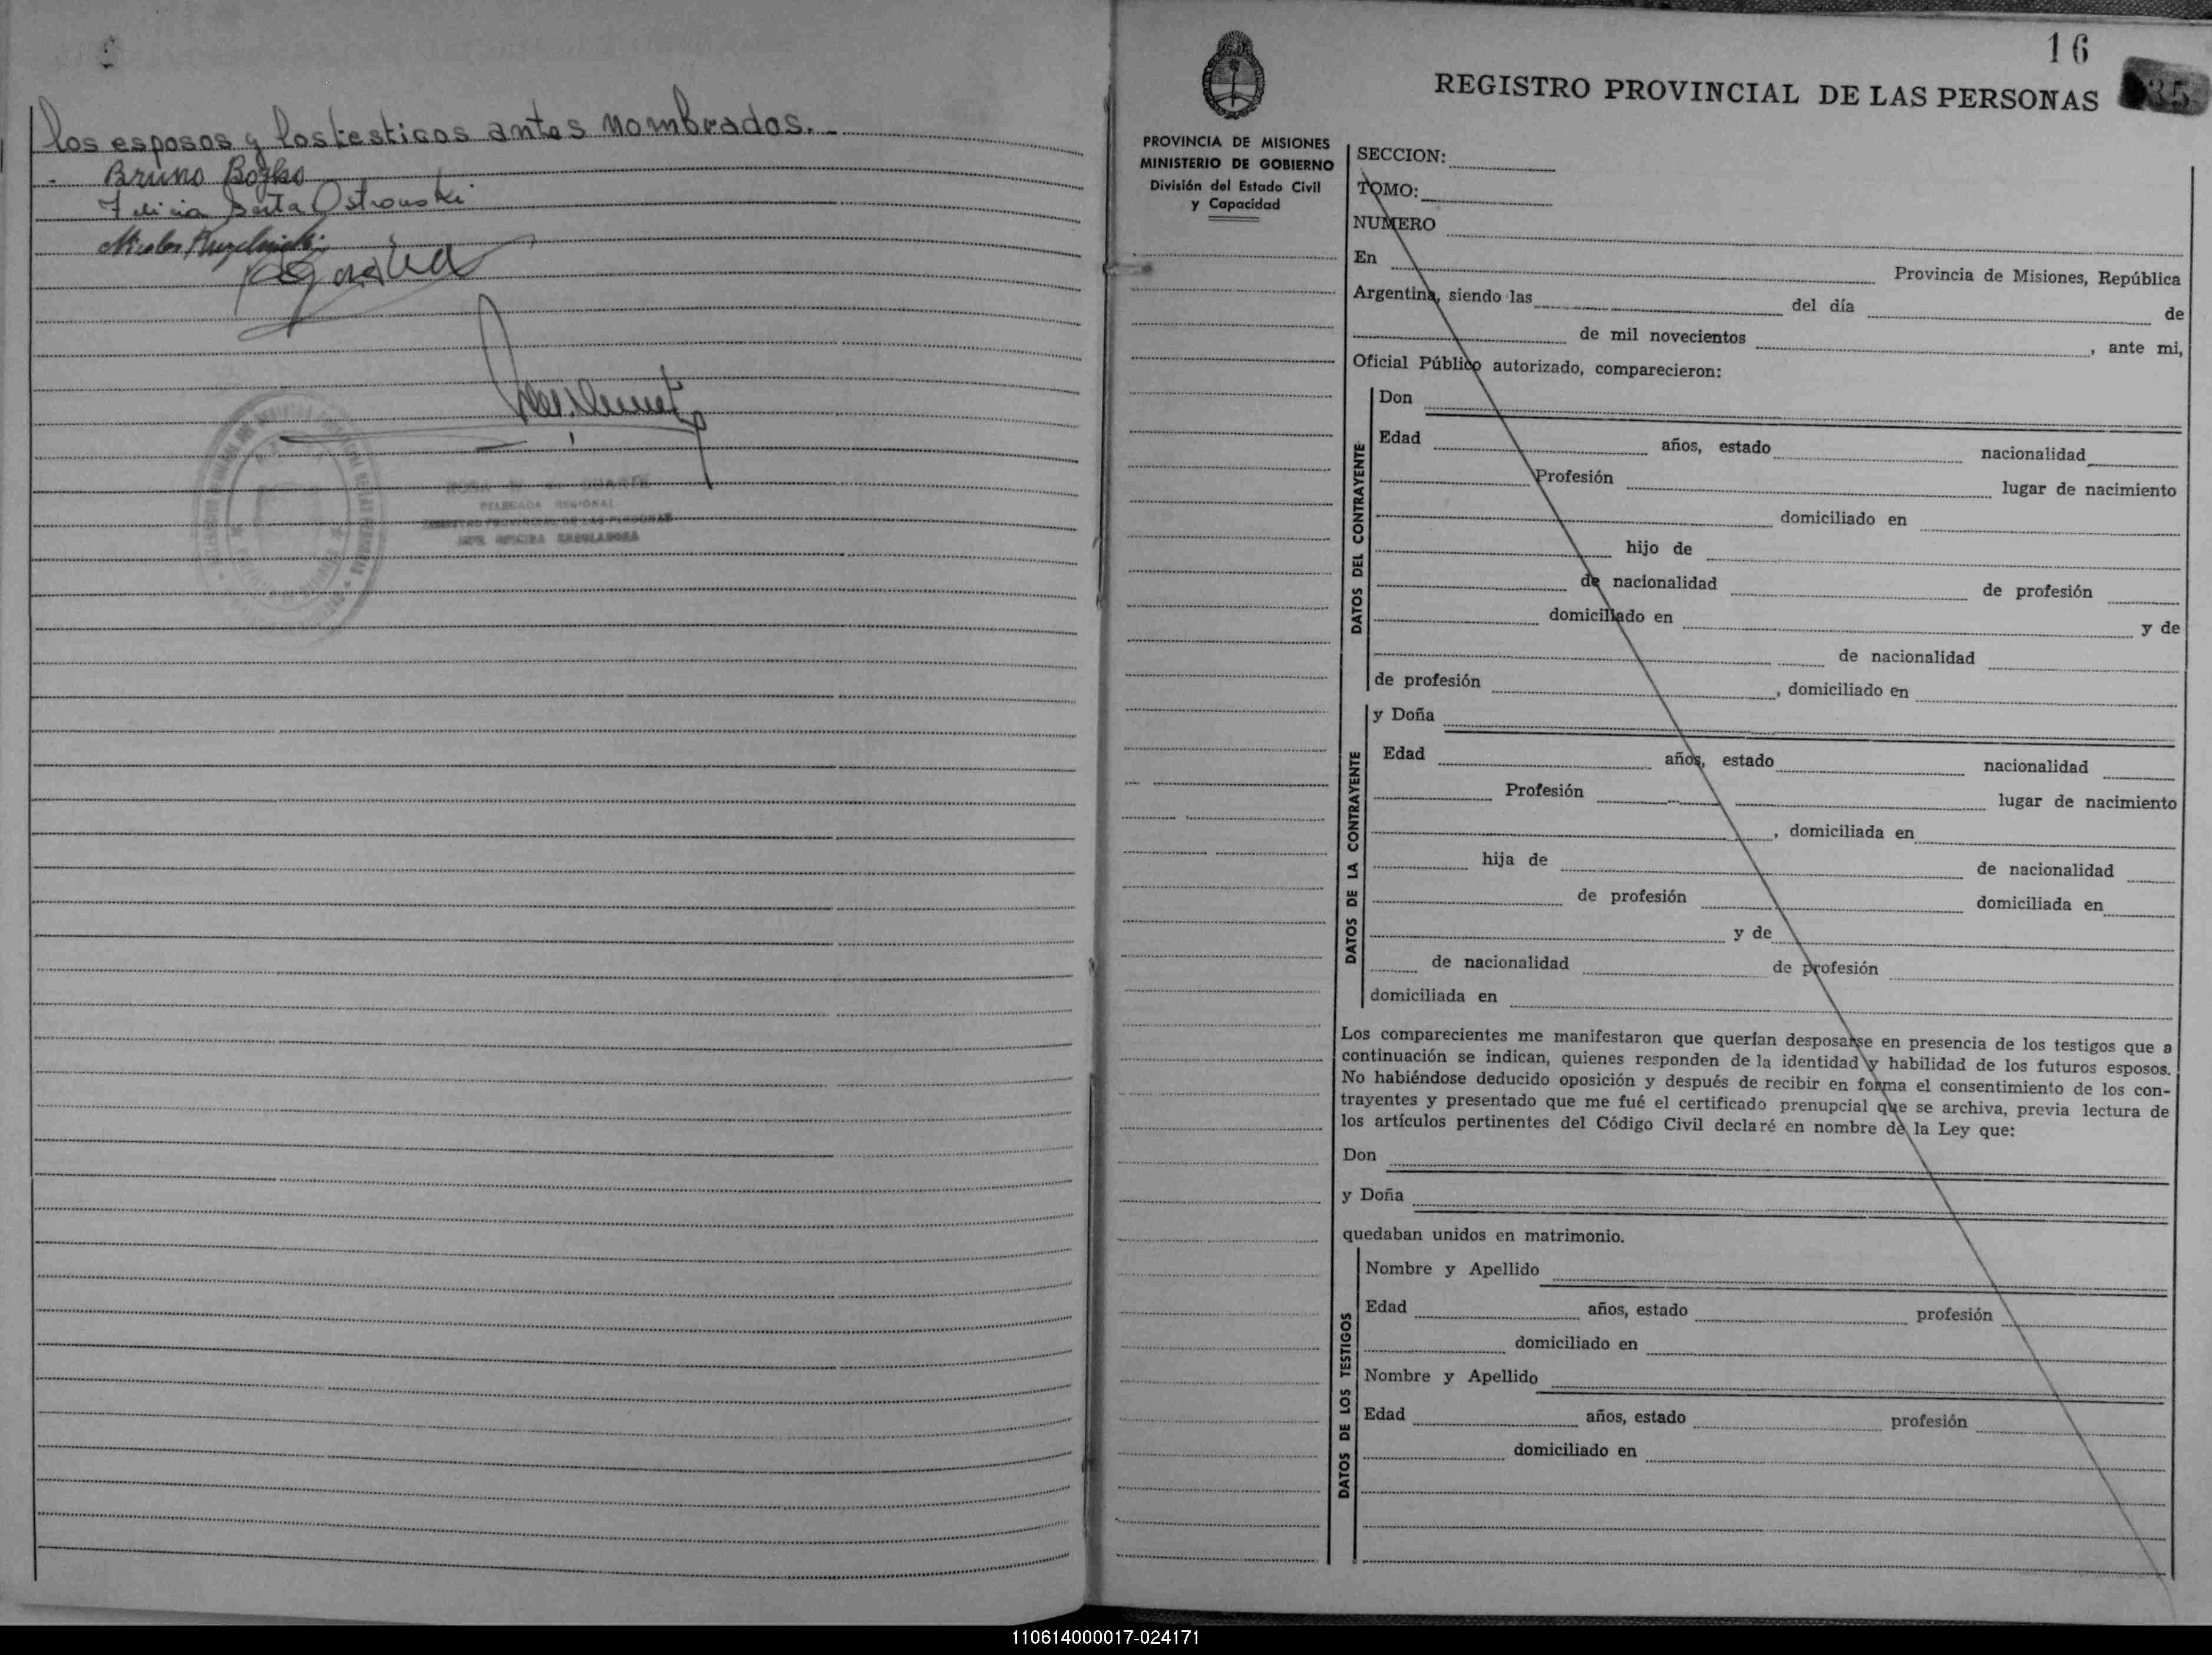 los esposos y los testigos antes nombrados.-
Bruno Bozko
Felicia Berta Ostrouski
DELEGADA REGIONAL
REGISTRO PROVINCIAL DE LAS PERSONAS
16
REGISTRO PROVINCIAL DE LAS PERSONAS
35
PROVINCIA DE MISIONES
MINISTERIO DE GOBIERNO
División del Estado Civil
y Capacidad
SECCION:
TOMO:
NUMERO
En Provincia de Misiones, República
Argentina, siendo las del día de
de mil novecientos , ante mi,
Oficial Público autorizado, comparecieron:
DATOS DEL CONTRAYENTE
Don
Edad años, estado nacionalidad
Profesión lugar de nacimiento
domiciliado en
hijo de
de nacionalidad de profesión
domiciliado en y de
de nacionalidad
de profesión , domiciliado en
DATOS DE LA CONTRAYENTE
y Doña
Edad años, estado nacionalidad
Profesión lugar de nacimiento
, domiciliada en
hija de de nacionalidad
de profesión domiciliada en
y de
de nacionalidad de profesión
domiciliada en
Los comparecientes me manifestaron que querían desposarse en presencia de los testigos que a
continuación se indican, quienes responden de la identidad y habilidad de los futuros esposos.
No habiéndose deducido oposición y después de recibir en forma el consentimiento de los con-
trayentes y presentado que me fué el certificado prenupcial que se archiva, previa lectura de
los artículos pertinentes del Código Civil declaré en nombre de la Ley que:
Don
y Doña
quedaban unidos en matrimonio.
DATOS DE LOS TESTIGOS
Nombre y Apellido
Edad años, estado profesión
domiciliado en
Nombre y Apellido
Edad años, estado profesión
domiciliado en
110614000017-024171